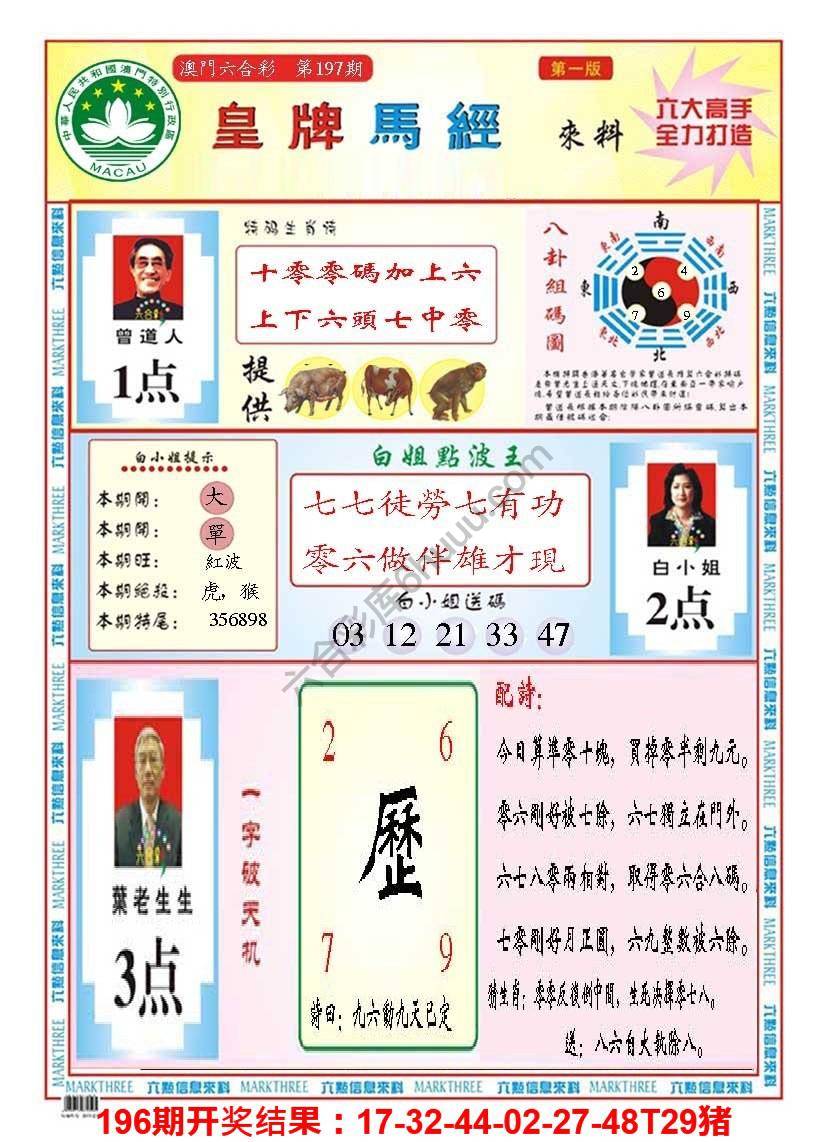 澳門六合彩 第197期
第一版
中華人民共和國澳門特別行政區
MACAU
皇牌馬經
來料
六大高手
全力打造
特码生肖诗
十零零碼加上六
上下六頭七中零
提供
六合彩
曾道人
1点
八卦組碼圖
南
東南
西南
東
西
東北
西北
北
2
4
6
7
9
白小姐提示
本期開: 大
本期開: 單
本期旺: 紅波
本期絕殺: 虎,猴
本期特尾: 356898
白姐點波王
七七徒勞七有功
零六做伴雄才現
白小姐送碼
03 12 21 33 47
白小姐
2点
六合彩
葉老生生
3点
一字破天机
2 6
歷
7 9
詩曰:九六動九天已定
配詩:
今日算準零十塊,買掉零半剩九元。
零六剛好被七除,六七獨立在門外。
六七八零兩相對,取得零六合八碼。
七零剛好月正圓,六九整數被六除。
猜生肖:零零反後倒中間,生死決擇零七八。
送:八六自大執除八。
六點信息來料 MARKTHREE
MARKTHREE 六點信息來料 MARKTHREE 六點信息來料 MARKTHREE 六點信息來料 MARKTHREE 六點信息來料
六合彩库6huuu.com
196期开奖结果:17-32-44-02-27-48T29猪